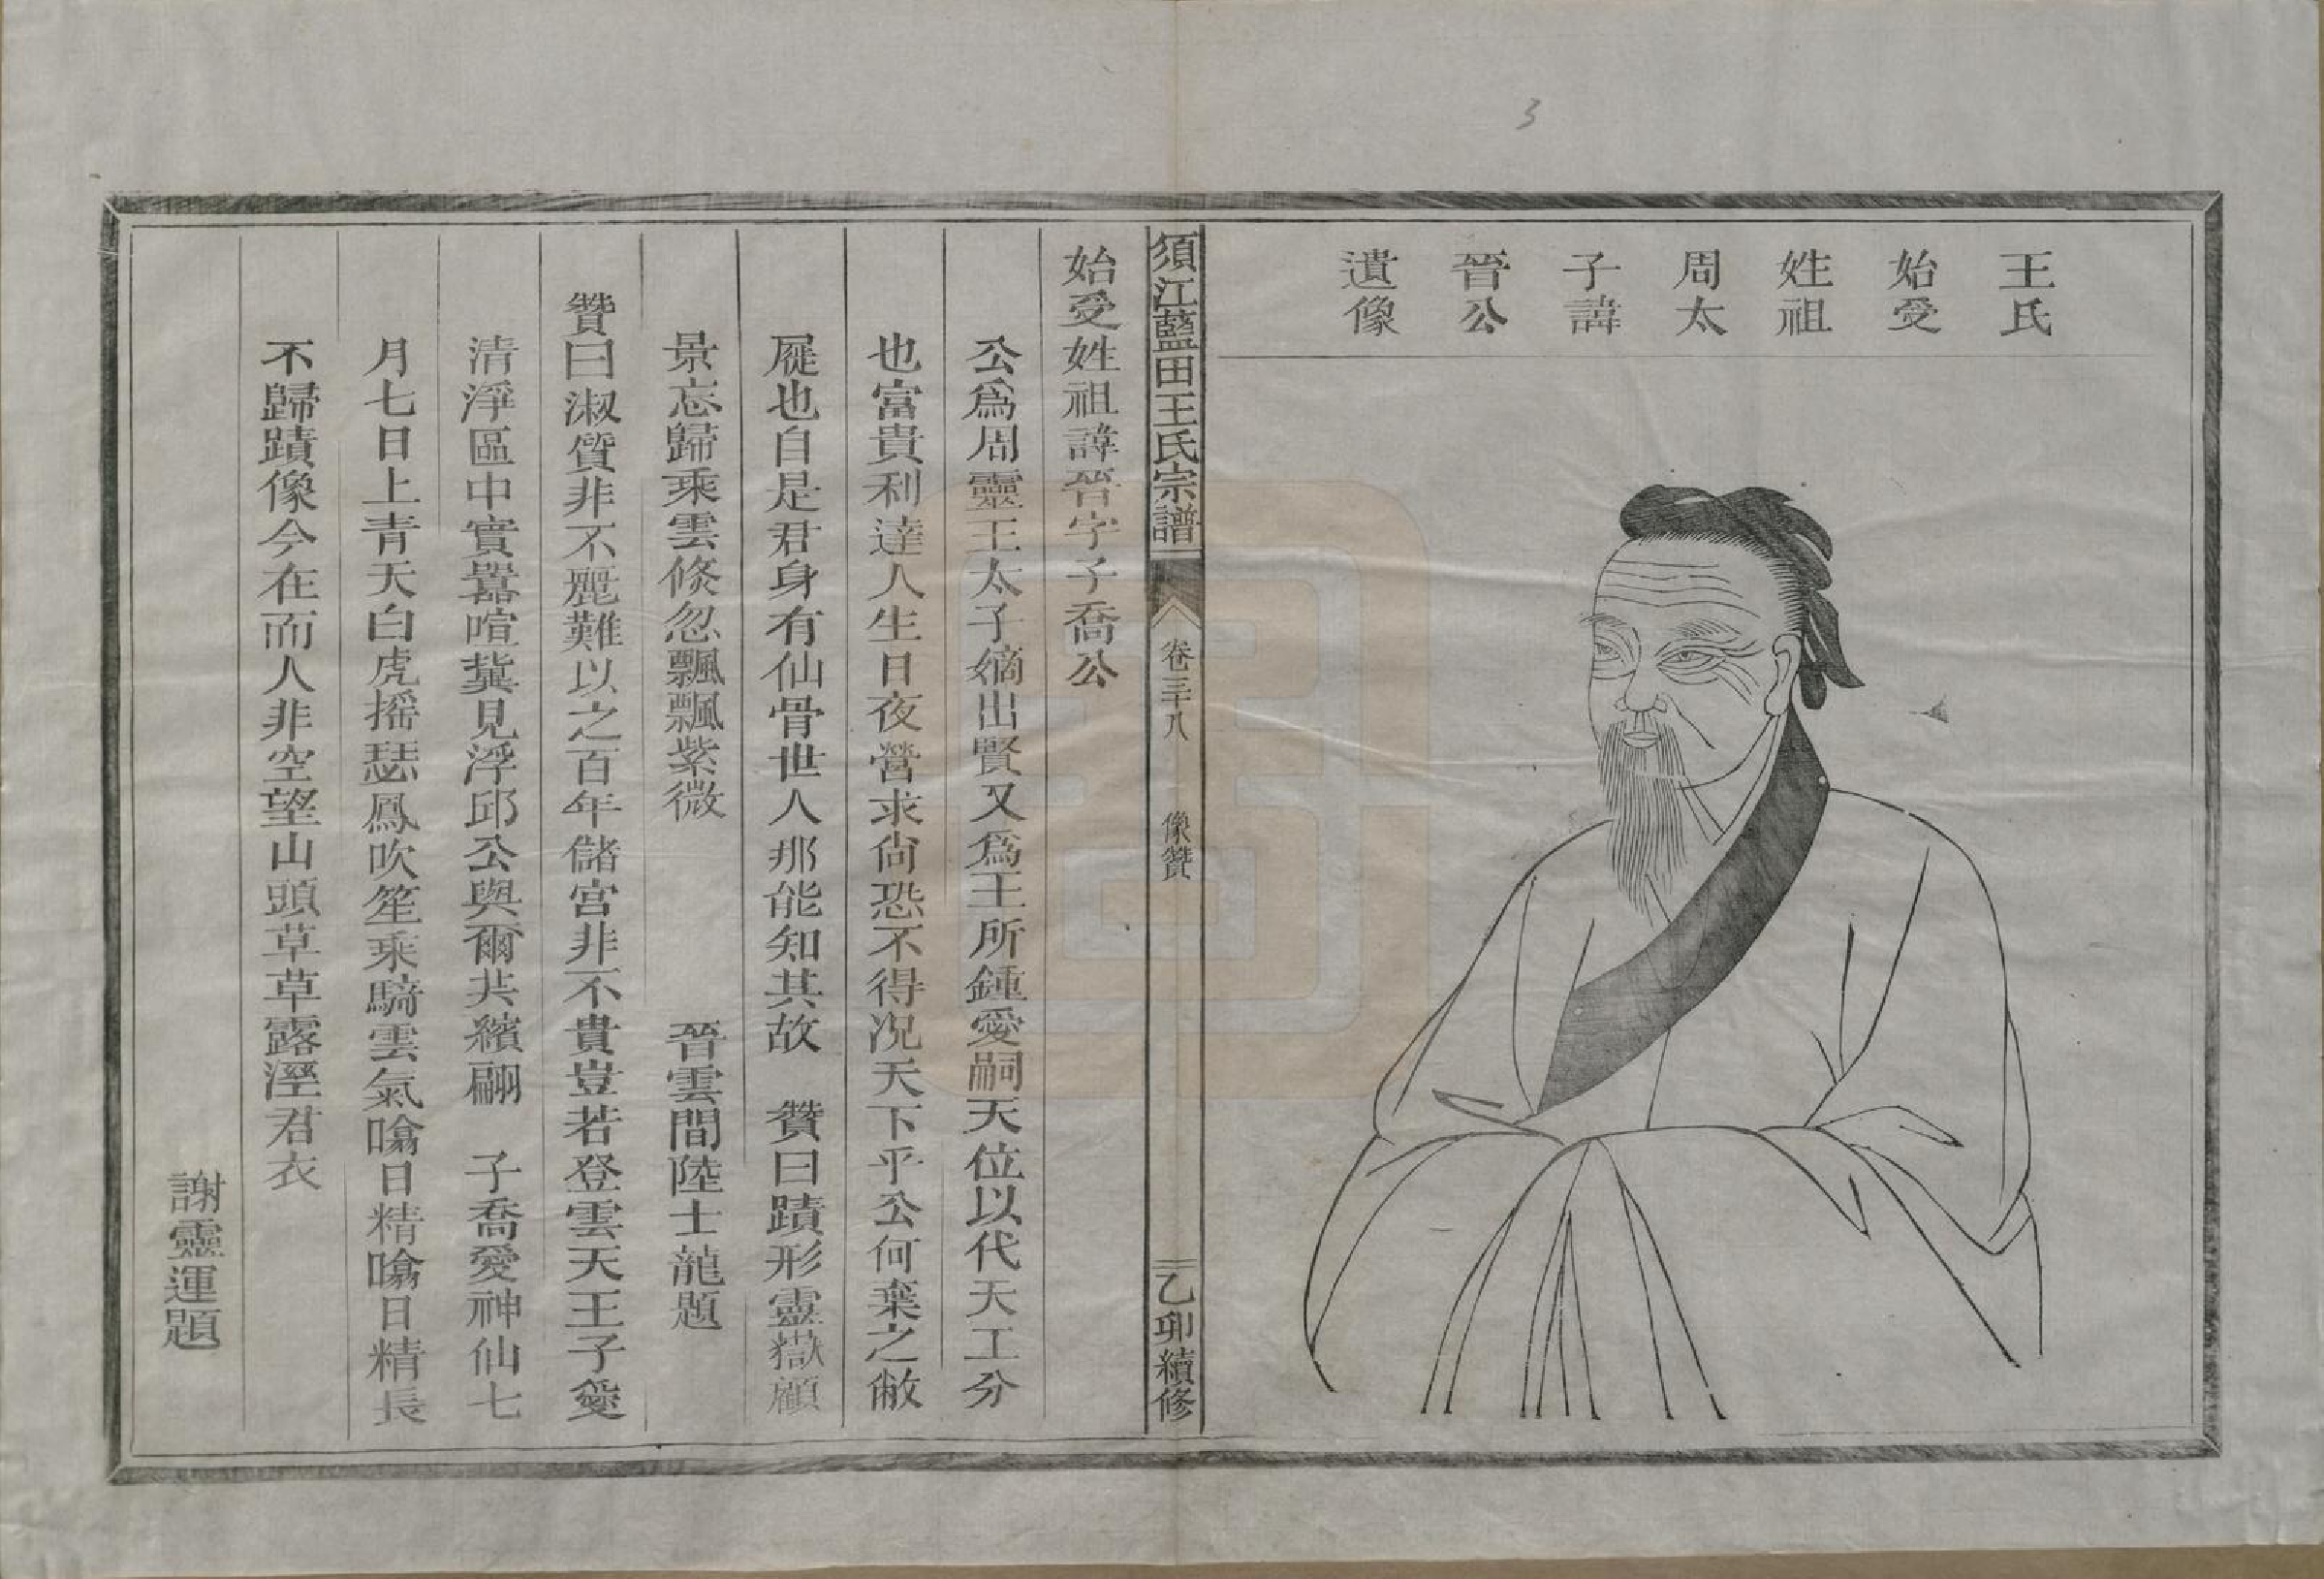 王氏
始受
姓祖
周太
子諱
晉公
遺像
須江藍田王氏宗譜
卷三十八
像贊
乙卯續修
始受姓祖諱晉字子喬公
公爲周靈王太子嫡出賢又爲王所鍾愛嗣天位以代天工分
也富貴利達人生日夜營求尙恐不得况天下乎公何棄之敝
屣也自是君身有仙骨世人那能知其故 贊曰蹟形靈嶽顧
景忘歸乘雲倐忽飄飄紫微 晉雲間陸士龍題
贊曰淑質非不麗難以之百年儲宮非不貴豈若登雲天王子愛
清淨區中實囂喧冀見浮邱公與爾共繽翩 子喬愛神仙七
月七日上青天白虎搖瑟鳳吹笙乘騎雲氣噏日精噏日精長
不歸蹟像今在而人非空望山頭草草露溼君衣
謝靈運題
3